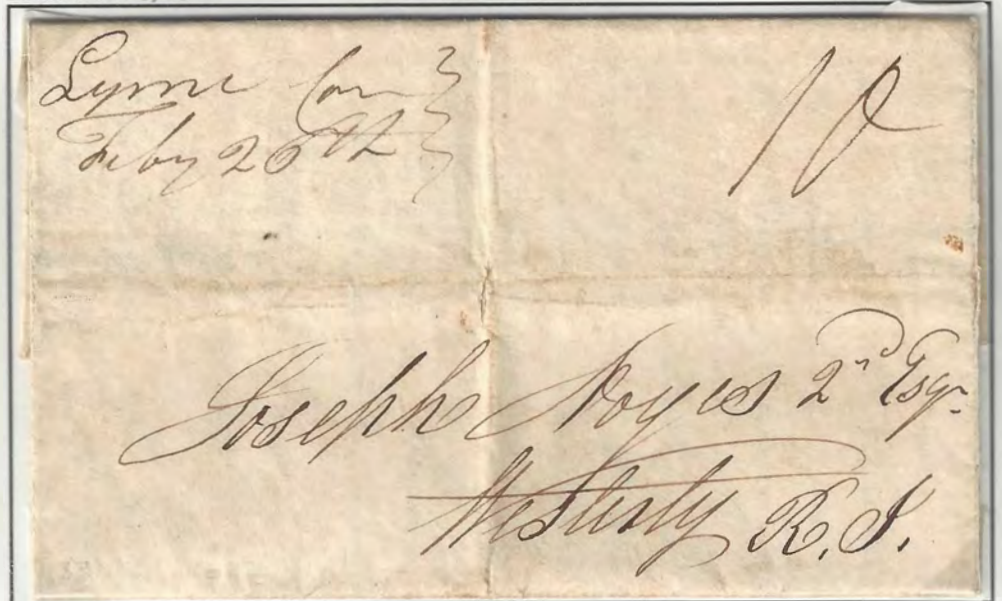 Lyme Con
Feby 26th
10
Joseph Noyes 2nd Esqr
Westerly R.I.